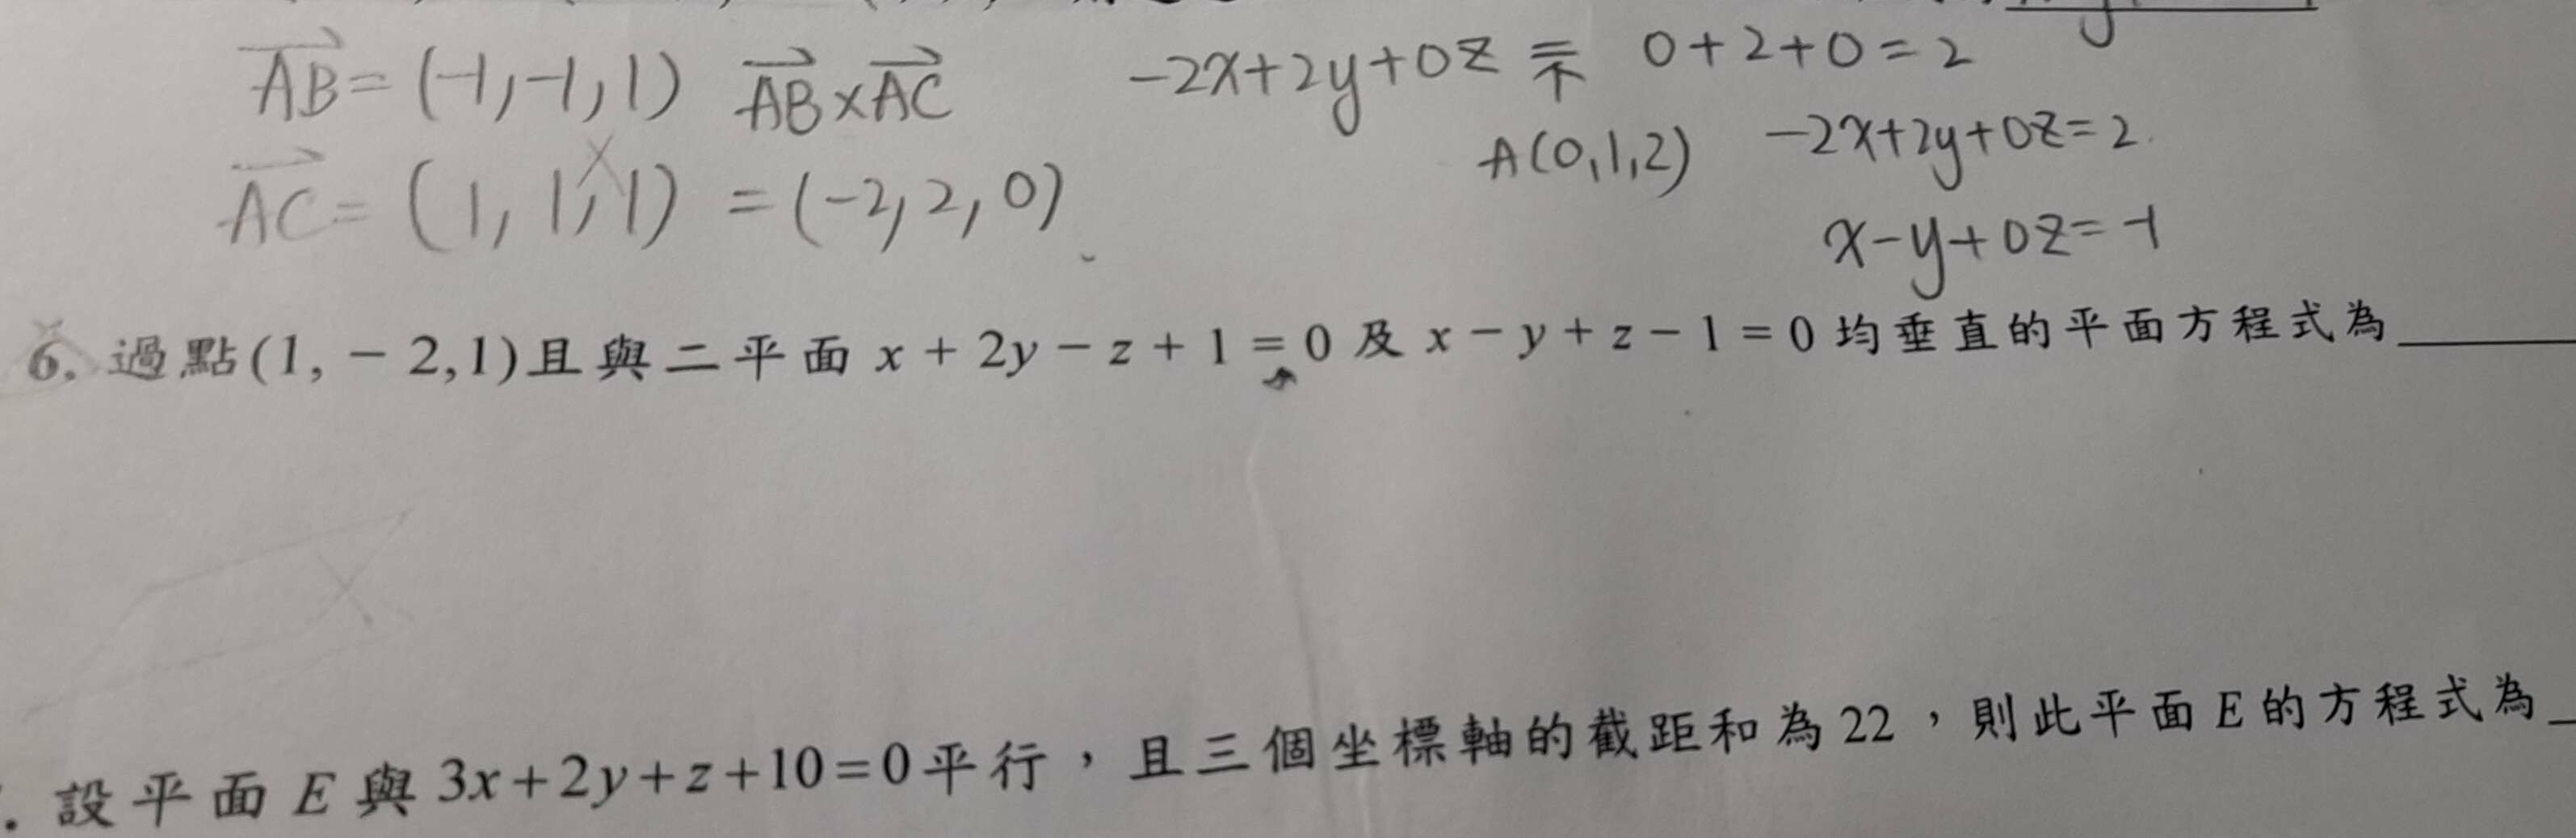 AB = (-1, -1, 1) AB × AC -2x+2y+0z 0+2+0=2
AC = (1, 1, 1) = (-2, 2, 0) A(0,1,2) -2x+2y+0z=2
x-y+0z=-1
6. 過點(1, -2,1)且與二平面 x + 2y - z + 1 = 0 及 x - y + z - 1 = 0 均垂直的平面方程式為
. 設平面 E 與 3x+2y+z+10=0 平行，且三個坐標軸的截距和為 22，則此平面 E 的方程式為